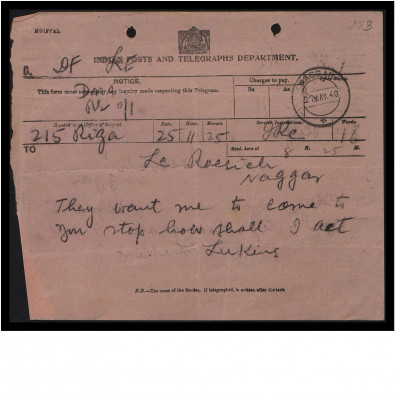 MGIPPAL
253
INDIAN POSTS AND TELEGRAPHS DEPARTMENT.
C. DF LE
NOTICE.
This form must accompany any inquiry made respecting this Telegram.
Charges to pay.
Rs. As.
NAGGAR
MAY.40
215 Riga
Date. Hour. Minute.
25 11 25
Words
16
TO
Recd. here at 8 H. 25 M.
Le Roerich
Naggar
They want me to come to
you stop how shall I act
Lukins
N.B.—The name of the Sender, if telegraphed, is written after the text.